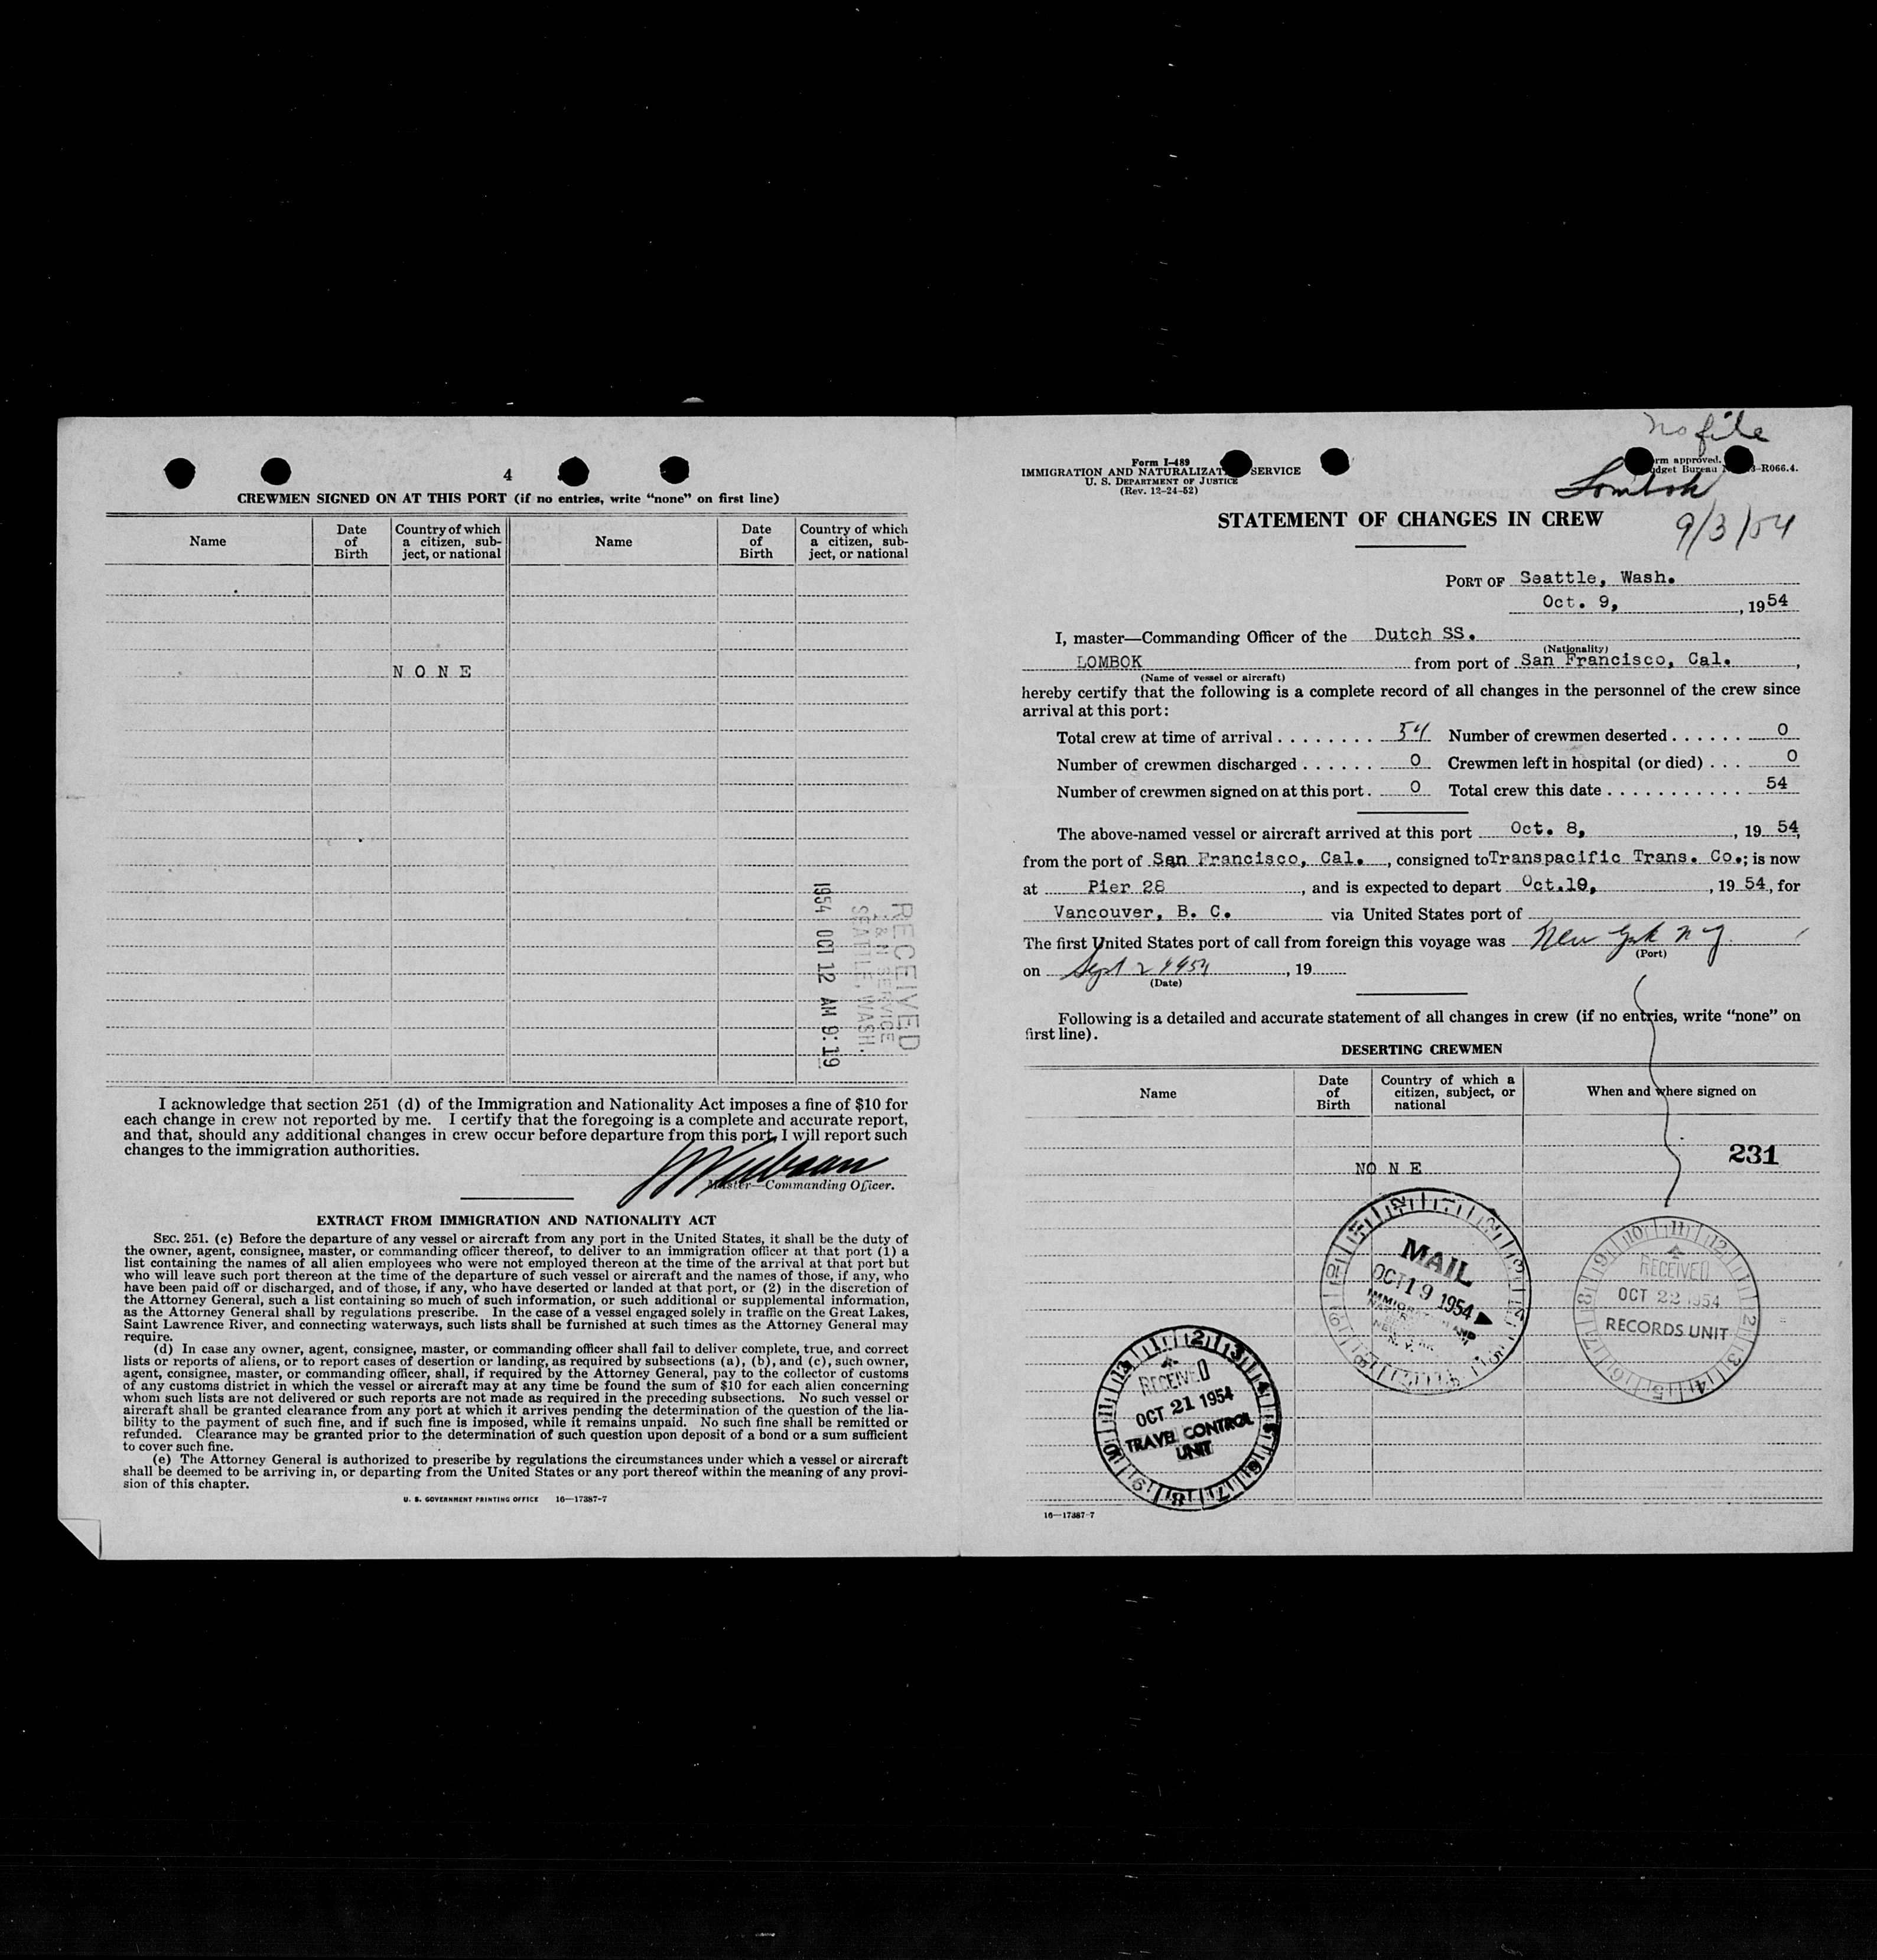 4
CREWMEN SIGNED ON AT THIS PORT (if no entries, write “none” on first line)
Name
Date of Birth
Country of which a citizen, subject, or national
Name
Date of Birth
Country of which a citizen, subject, or national
N O N E
RECEIVED
I & N SERVICE
SEATTLE, WASH.
1954 OCT 12 AM 9:19
I acknowledge that section 251 (d) of the Immigration and Nationality Act imposes a fine of $10 for
each change in crew not reported by me. I certify that the foregoing is a complete and accurate report,
and that, should any additional changes in crew occur before departure from this port, I will report such
changes to the immigration authorities.
Master—Commanding Officer.
EXTRACT FROM IMMIGRATION AND NATIONALITY ACT
SEC. 251. (c) Before the departure of any vessel or aircraft from any port in the United States, it shall be the duty of
the owner, agent, consignee, master, or commanding officer thereof, to deliver to an immigration officer at that port (1) a
list containing the names of all alien employees who were not employed thereon at the time of the arrival at that port but
who will leave such port thereon at the time of the departure of such vessel or aircraft and the names of those, if any, who
have been paid off or discharged, and of those, if any, who have deserted or landed at that port, or (2) in the discretion of
the Attorney General, such a list containing so much of such information, or such additional or supplemental information,
as the Attorney General shall by regulations prescribe. In the case of a vessel engaged solely in traffic on the Great Lakes,
Saint Lawrence River, and connecting waterways, such lists shall be furnished at such times as the Attorney General may
require.
(d) In case any owner, agent, consignee, master, or commanding officer shall fail to deliver complete, true, and correct
lists or reports of aliens, or to report cases of desertion or landing, as required by subsections (a), (b), and (c), such owner,
agent, consignee, master, or commanding officer, shall, if required by the Attorney General, pay to the collector of customs
of any customs district in which the vessel or aircraft may at any time be found the sum of $10 for each alien concerning
whom such lists are not delivered or such reports are not made as required in the preceding subsections. No such vessel or
aircraft shall be granted clearance from any port at which it arrives pending the determination of the question of the lia-
bility to the payment of such fine, and if such fine is imposed, while it remains unpaid. No such fine shall be remitted or
refunded. Clearance may be granted prior to the determination of such question upon deposit of a bond or a sum sufficient
to cover such fine.
(e) The Attorney General is authorized to prescribe by regulations the circumstances under which a vessel or aircraft
shall be deemed to be arriving in, or departing from the United States or any port thereof within the meaning of any provi-
sion of this chapter.
U. S. GOVERNMENT PRINTING OFFICE 16—17387-7
no file
Form I-489
IMMIGRATION AND NATURALIZAT SERVICE
U. S. DEPARTMENT OF JUSTICE
(Rev. 12-24-52)
rm approved.
dget Bureau 3-R066.4.
Lombok
9/3/54
STATEMENT OF CHANGES IN CREW
PORT OF Seattle, Wash.
Oct. 9, , 1954
I, master—Commanding Officer of the Dutch SS.
(Nationality)
LOMBOK from port of San Francisco, Cal. ,
(Name of vessel or aircraft)
hereby certify that the following is a complete record of all changes in the personnel of the crew since
arrival at this port:
Total crew at time of arrival . . . . . . . . 54 Number of crewmen deserted . . . . . . 0
Number of crewmen discharged . . . . . . 0 Crewmen left in hospital (or died) . . . 0
Number of crewmen signed on at this port . 0 Total crew this date . . . . . . . . . . . 54
The above-named vessel or aircraft arrived at this port Oct. 8, , 19 54,
from the port of San Francisco, Cal. , consigned to Transpacific Trans. Co.; is now
at Pier 28 , and is expected to depart Oct.10, , 19 54, for
Vancouver, B. C. via United States port of
The first United States port of call from foreign this voyage was New York N Y.
(Port)
on Sept 2 1954 , 19
(Date)
Following is a detailed and accurate statement of all changes in crew (if no entries, write “none” on
first line).
DESERTING CREWMEN
Name
Date of Birth
Country of which a citizen, subject, or national
When and where signed on
231
NO N E
MAIL
OCT 19 1954
N. Y.
RECEIVED
OCT 22 1954
RECORDS UNIT
RECEIVED
OCT 21 1954
TRAVEL CONTROL
UNIT
16—17387-7